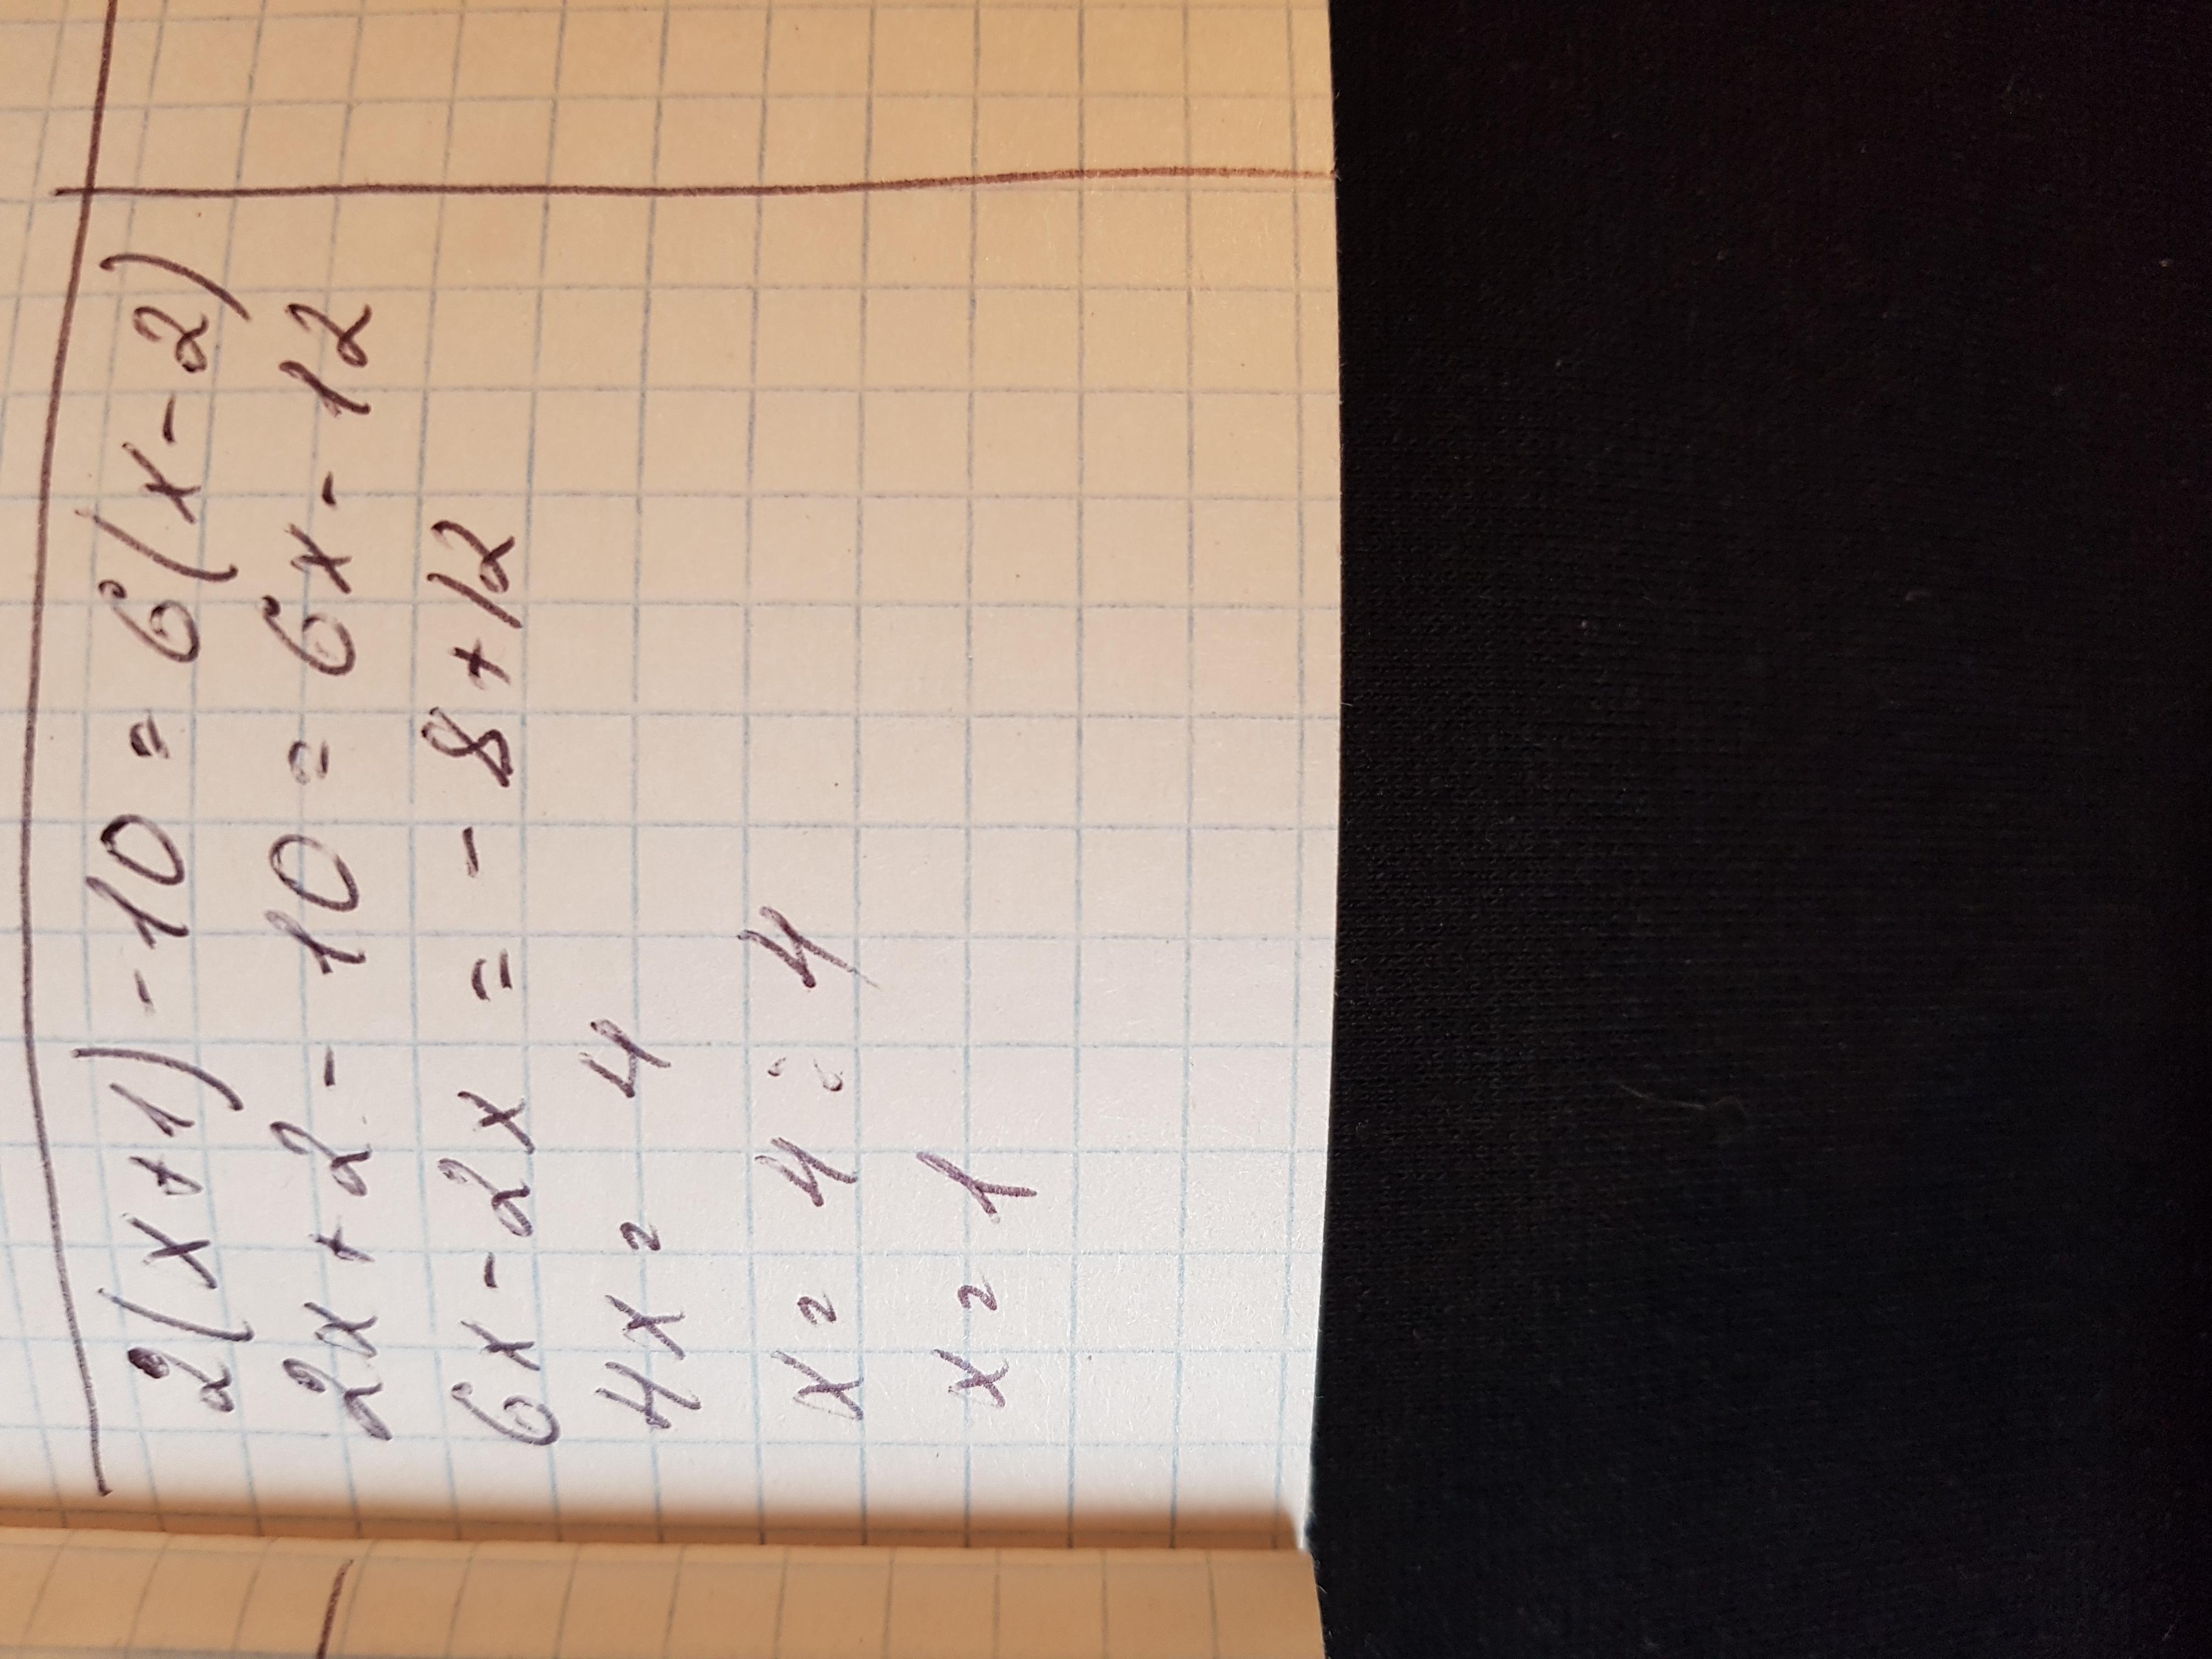 2(x+1)-10=6(x-2)
2x+2-10=6x-12
6x-2x=-8+12
4x=4
x=4:4
x=1